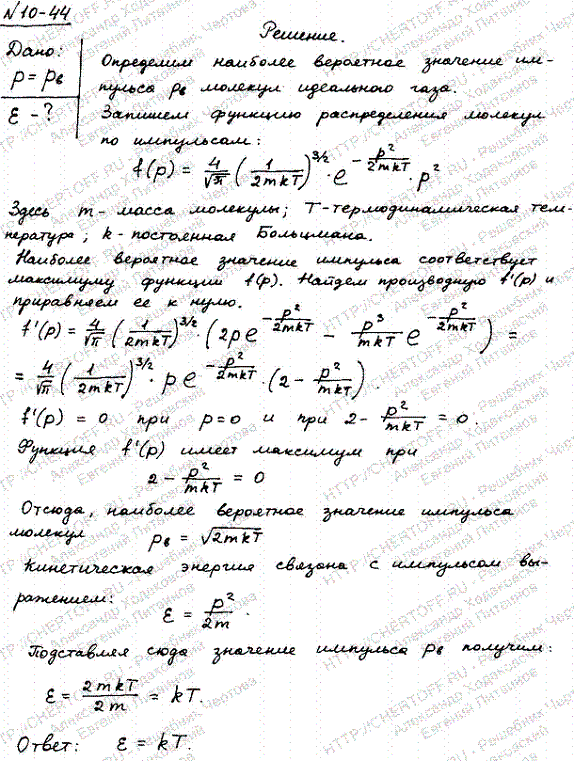 №10-44
Решение.
Дано:
p = pв
ε - ?
Определим наиболее вероятное значение им-
пульса pв молекул идеального газа.
Запишем функцию распределения молекул
по импульсам:
f(p) = 4/√π (1/2mkT)^3/2 · e^(-p²/2mkT) · p²
Здесь m - масса молекулы; T - термодинамическая тем-
пература; k - постоянная Больцмана.
Наиболее вероятное значение импульса соответствует
максимуму функции f(p). Найдем производную f'(p) и
приравняем ее к нулю.
f'(p) = 4/√π (1/2mkT)^3/2 · (2p e^(-p²/2mkT) - p³/mkT e^(-p²/2mkT)) =
= 4/√π (1/2mkT)^3/2 · p e^(-p²/2mkT) · (2 - p²/mkT).
f'(p) = 0 при p=0 и при 2 - p²/mkT = 0.
Функция f'(p) имеет максимум при
2 - p²/mkT = 0
Отсюда, наиболее вероятное значение импульса
молекул pв = √2mkT
Кинетическая энергия связана с импульсом вы-
ражением:
ε = p²/2m.
Подставляя сюда значение импульса pв получим:
ε = 2mkT/2m = kT.
Ответ: ε = kT.
HTTP://CHERTOFF.RU - Решебник Чертова
Александр Ходаковский
Евгений Литвинов